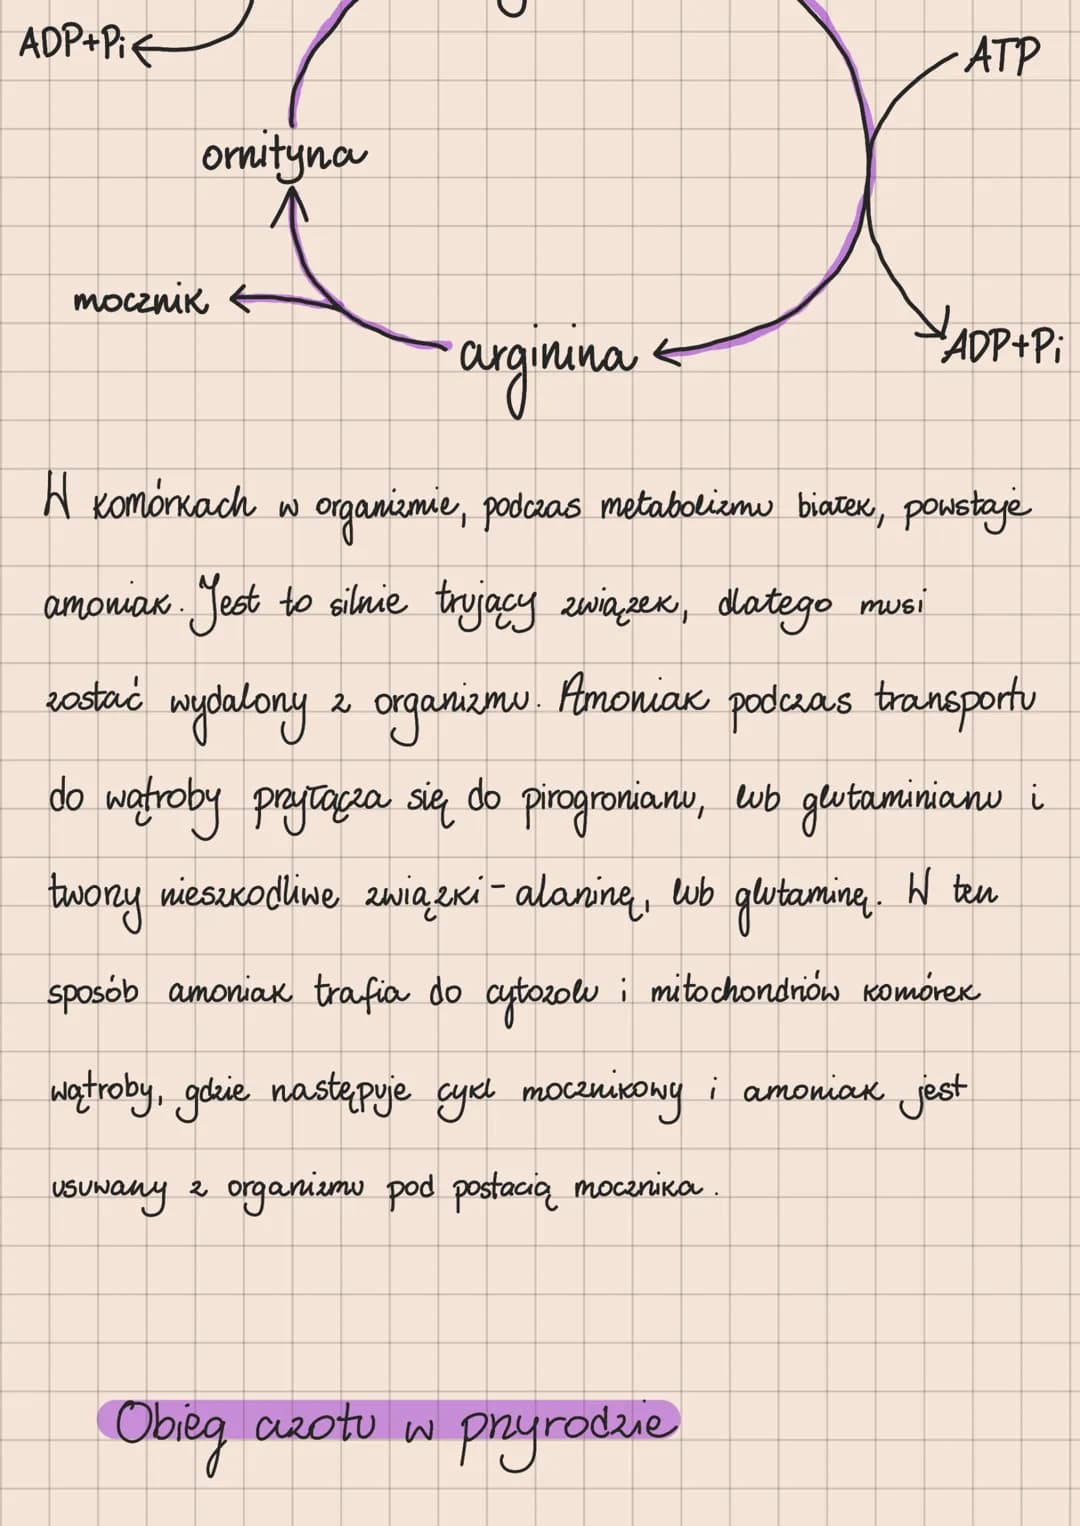 ADP+Pi
ATP
ornityna
mocznik
arginina
ADP+Pi
W komórkach w organizmie, podczas metabolizmu białek, powstaje
amoniak. Jest to silnie trujący związek, dlatego musi
zostać wydalony z organizmu. Amoniak podczas transportu
do wątroby przyłącza się do pirogronianu, lub glutaminianu i
tworzy nieszkodliwe związki - alaninę, lub glutaminę. W ten
sposób amoniak trafia do cytozolu i mitochondriów komórek
wątroby, gdzie następuje cykl mocznikowy i amoniak jest
usuwany z organizmu pod postacią mocznika.
Obieg azotu w przyrodzie